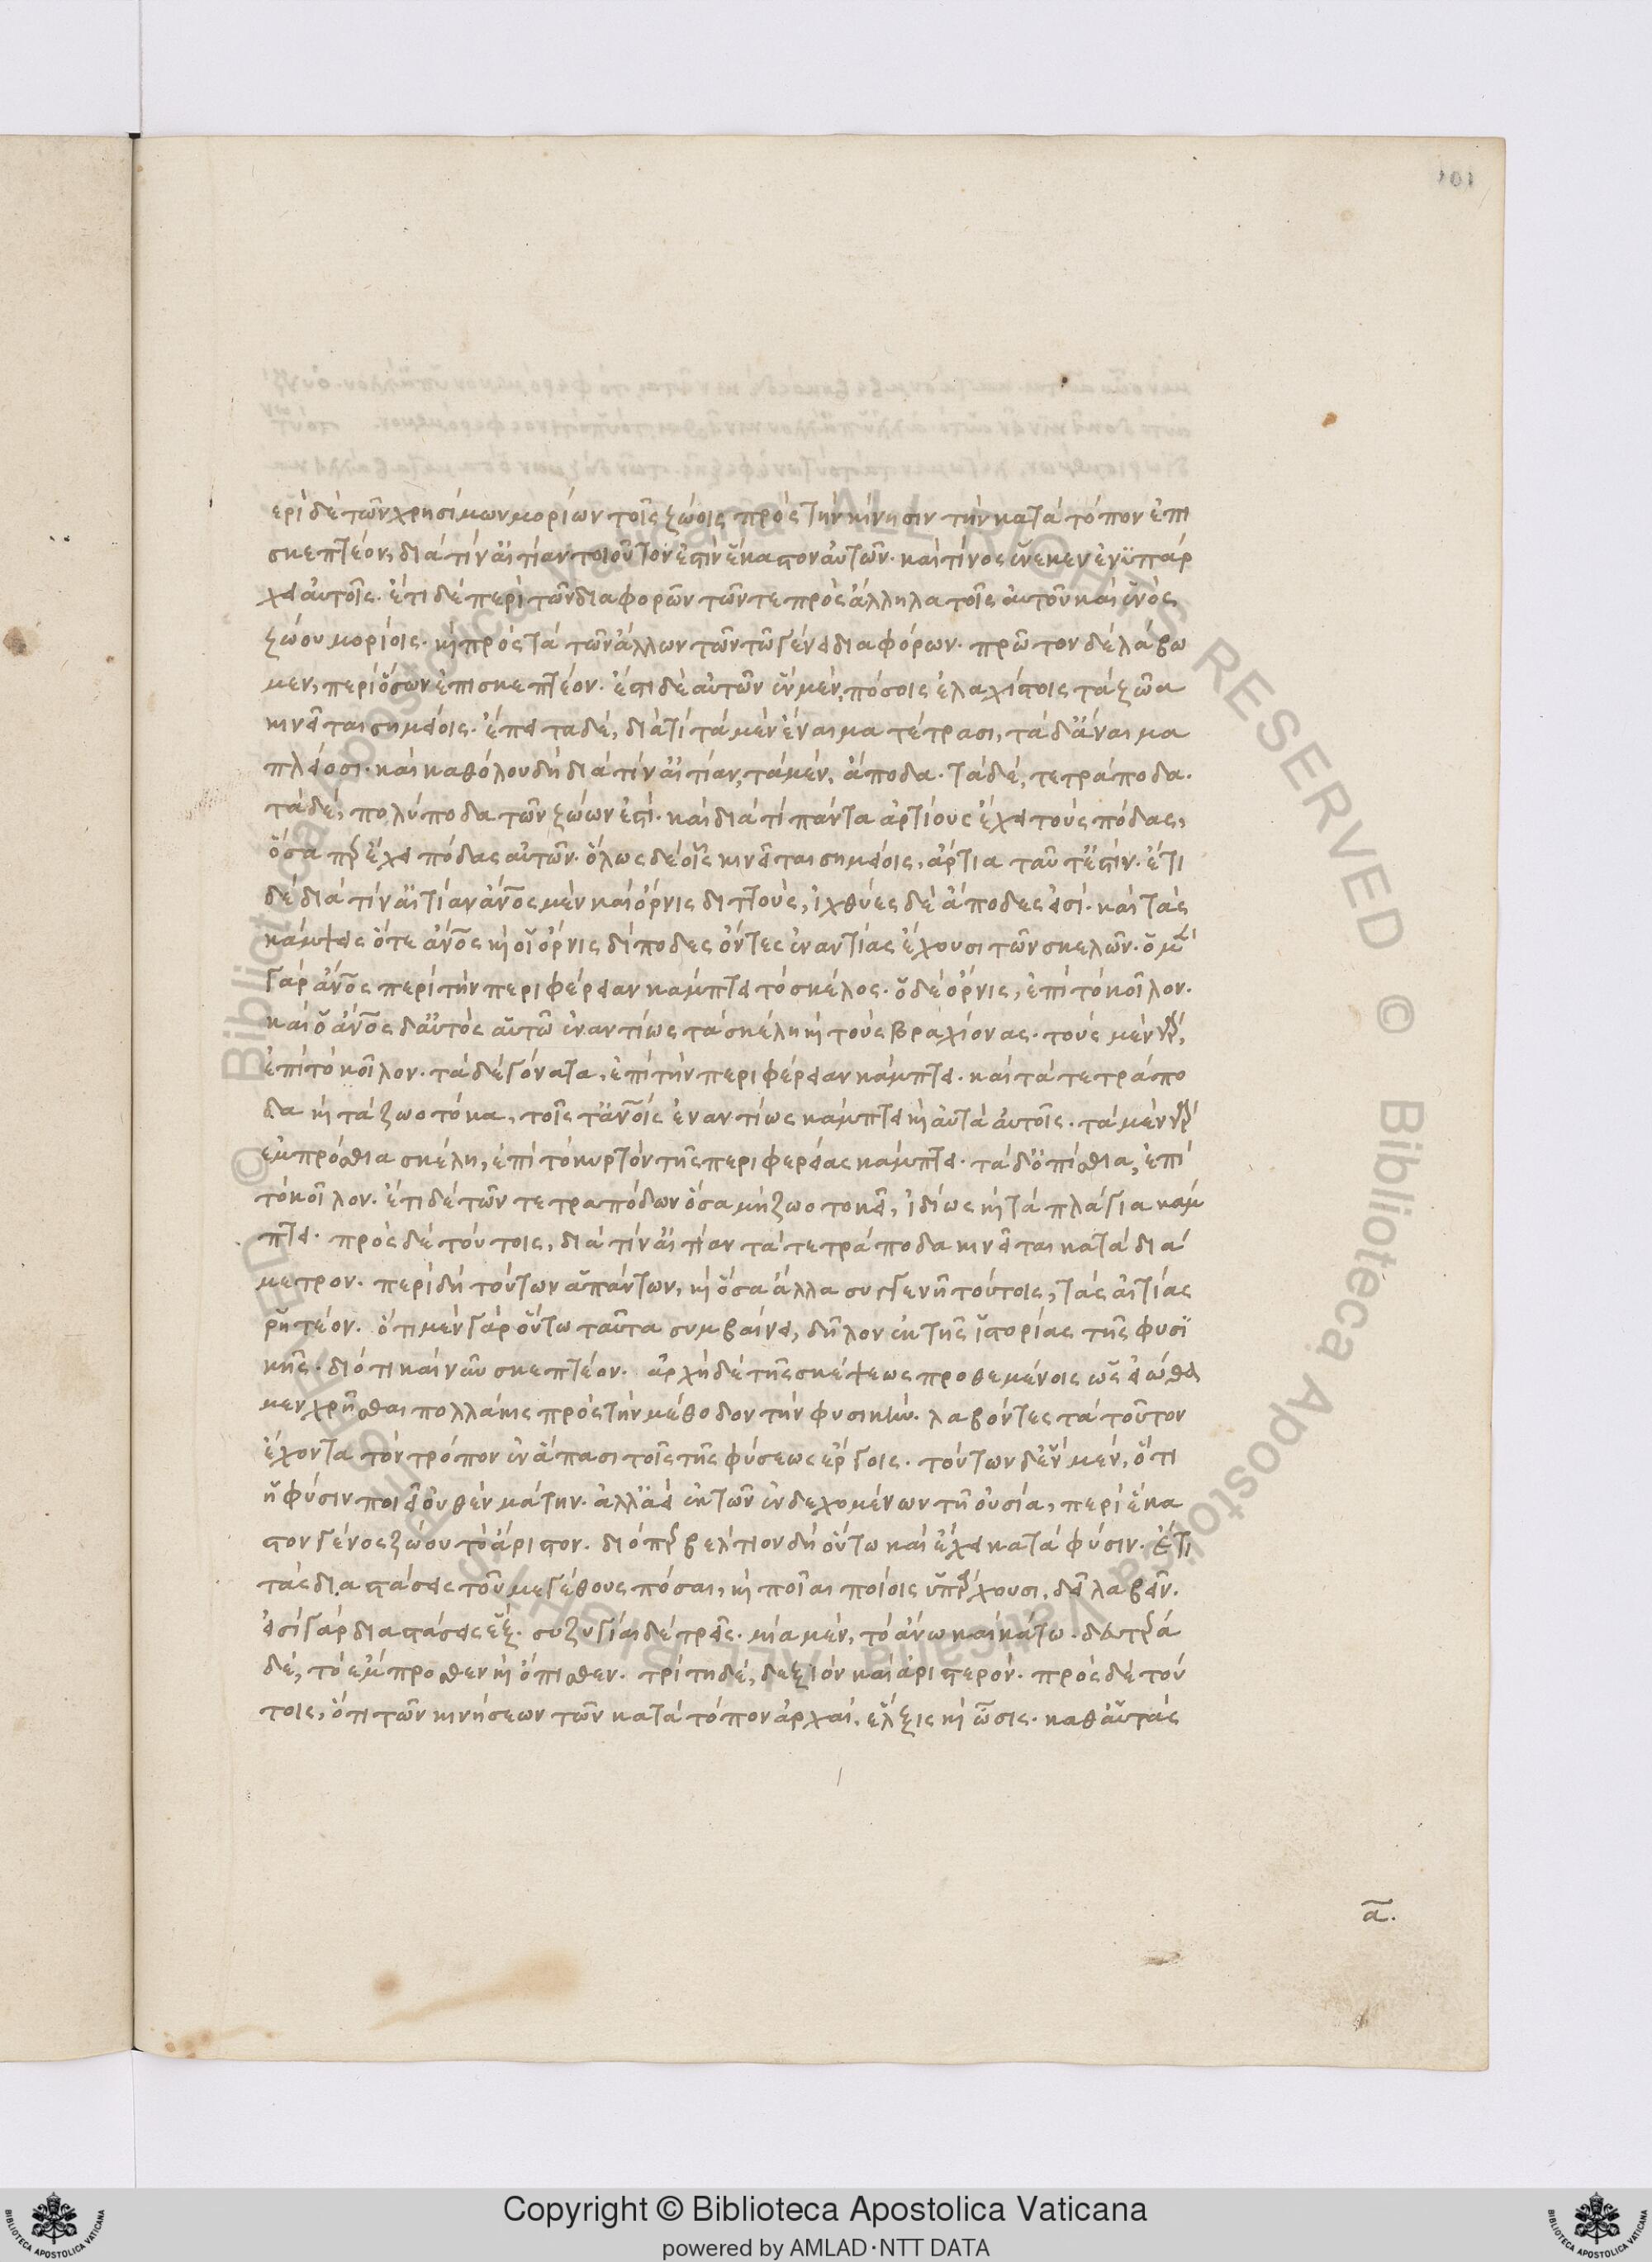 101
ερὶ δὲ τῶν χρησίμων μορίων τοῖς ζώοις πρὸς τὴν κίνησιν τὴν κατὰ τόπον ἐπι
σκεπτέον, διὰ τίν' αἰτίαν τοιοῦτον ἐστὶν ἕκαστον αὐτῶν. καὶ τίνος ἕνεκεν ἐνυπάρ
χει αὐτοῖς. ἔτι δὲ περὶ τῶν διαφορῶν τῶν τε πρὸς ἄλληλα τοῖς αὐτοῦ καὶ ἑνὸς
ζώου μορίοις. κỳ πρὸς τὰ τῶν ἄλλων τῶν τῶ γένει διαφόρων. πρῶτον δὲ λάβω
μεν, περὶ ὅσων ἐπισκεπτέον. ἔστι δὲ αὐτῶν ἓν μὲν, πόσοις ἐλαχίστοις τὰ ζῶα
κινεῖται σημείοις. ἔπειτα δὲ, διατί τὰ μὲν ἔναιμα τέτρασι, τὰ δ' ἄναιμα
πλείοσι. καὶ καθόλου δὴ διὰ τίν' αἰτίαν, τὰ μὲν, ἄποδα. τὰ δὲ, τετράποδα.
τὰ δὲ, πολύποδα τῶν ζώων ἐστί. καὶ διατί πάντα ἀρτίους ἔχει τοὺς πόδας,
ὅσα πρ ἔχει πόδας αὐτῶν. ὅλως δὲ οἷς κινεῖται σημείοις, ἄρτια ταῦτ' ἐστίν. ἔτι
δὲ διὰ τίν' αἰτίαν ἄνος μὲν καὶ ὄρνις δίπους, ἰχθύες δὲ ἄποδες εἰσί. καὶ τὰς
κάμψεις ὅτε ἄνος κỳ ὁ ὄρνις δίποδες ὄντες ἐναντίας ἔχουσι τῶν σκελῶν. ὁ μ
γὰρ ἄνος περὶ τὴν περιφέρειαν κάμπτει τὸ σκέλος. ὁ δὲ ὄρνις, ἐπὶ τὸ κοῖλον.
καὶ ὁ ἄνος δ' αὐτὸς αὑτῶ ἐναντίως τὰ σκέλη κỳ τοὺς βραχίονας. τοὺς μὲν γρ,
ἐπὶ τὸ κοῖλον. τὰ δὲ γόνατα, ἐπὶ τὴν περιφέρειαν κάμπτει. καὶ τὰ τετράπο
δα κỳ τὰ ζωοτόκα, τοῖς τ' ἄνοις ἐναντίως κάμπτει κỳ αὐτὰ αὑτοῖς. τὰ μὲν γρ
ἐμπρόσθια σκέλη, ἐπὶ τὸ κυρτὸν τῆς περιφερείας κάμπτει. τὰ δ' ὀπίσθια, ἐπὶ
τὸ κοῖλον. ἔτι δὲ τῶν τετραπόδων ὅσα μὴ ζωοτοκεῖ, ἰδίως κỳ τὰ πλάγια κάμ
πτει. πρὸς δὲ τούτοις, διὰ τίν' αἰτίαν τὰ τετράποδα κινεῖται κατὰ διά
μετρον. περὶ δὴ τούτων ἁπάντων, κỳ ὅσα ἄλλα συγγενῆ τούτοις, τὰς αἰτίας
ῥητέον. ὅτι μὲν γὰρ οὕτω ταῦτα συμβαίνει, δῆλον ἐκ τῆς ἱστορίας τῆς φυσϊ
κῆς. διότι καὶ νῦν σκεπτέον. ἀρχὴ δὲ τῆς σκέψεως προθεμένοις ὡς εἰώθα
μεν χρῆσθαι πολλάκις πρὸς τὴν μέθοδον τὴν φυσικὴν. λαβόντες τὰ τοῦτον
ἔχοντα τὸν τρόπον ἐν ἅπασι τοῖς τῆς φύσεως ἔργοις. τούτων δ' ἓν μὲν, ὅτι
ἡ φύσιν ποιεῖ οὐθὲν μάτην. ἀλλ' ἀεὶ ἐκ τῶν ἐνδεχομένων τῆ οὐσία, περὶ ἕκα
στον γένος ζώου τὸ ἄριστον. διόπρ βέλτιον δὴ οὕτω καὶ ἔχει κατὰ φύσιν. ἔτι
τὰς διαστάσεις τοῦ μεγέθους πόσαι, κỳ ποῖαι ποίοις ὑπάρχουσι, δεῖ λαβεῖν.
εἰσὶ γὰρ διαστάσεις ἕξ. συζυγίαι δὲ τρεῖς. μία μὲν, τὸ ἄνω καὶ κάτω. δευτέρα
δὲ, τὸ ἔμπροσθεν κỳ ὄπισθεν. τρίτη δὲ, δεξιὸν καὶ ἀριστερόν. πρὸς δὲ τού
τοις, ὅτι τῶν κινήσεων τῶν κατὰ τόπον ἀρχαὶ, ἕλξις κỳ ὦσις. καθ' αὑτὰς
α.
© Biblioteca Apostolica Vaticana ALL RIGHTS RESERVED © Biblioteca Apostolica Vaticana ALL RIGHTS RESERVED
Copyright © Biblioteca Apostolica Vaticana
powered by AMLAD·NTT DATA
BIBLIOTECA APOSTOLICA VATICANA
BIBLIOTECA APOSTOLICA VATICANA